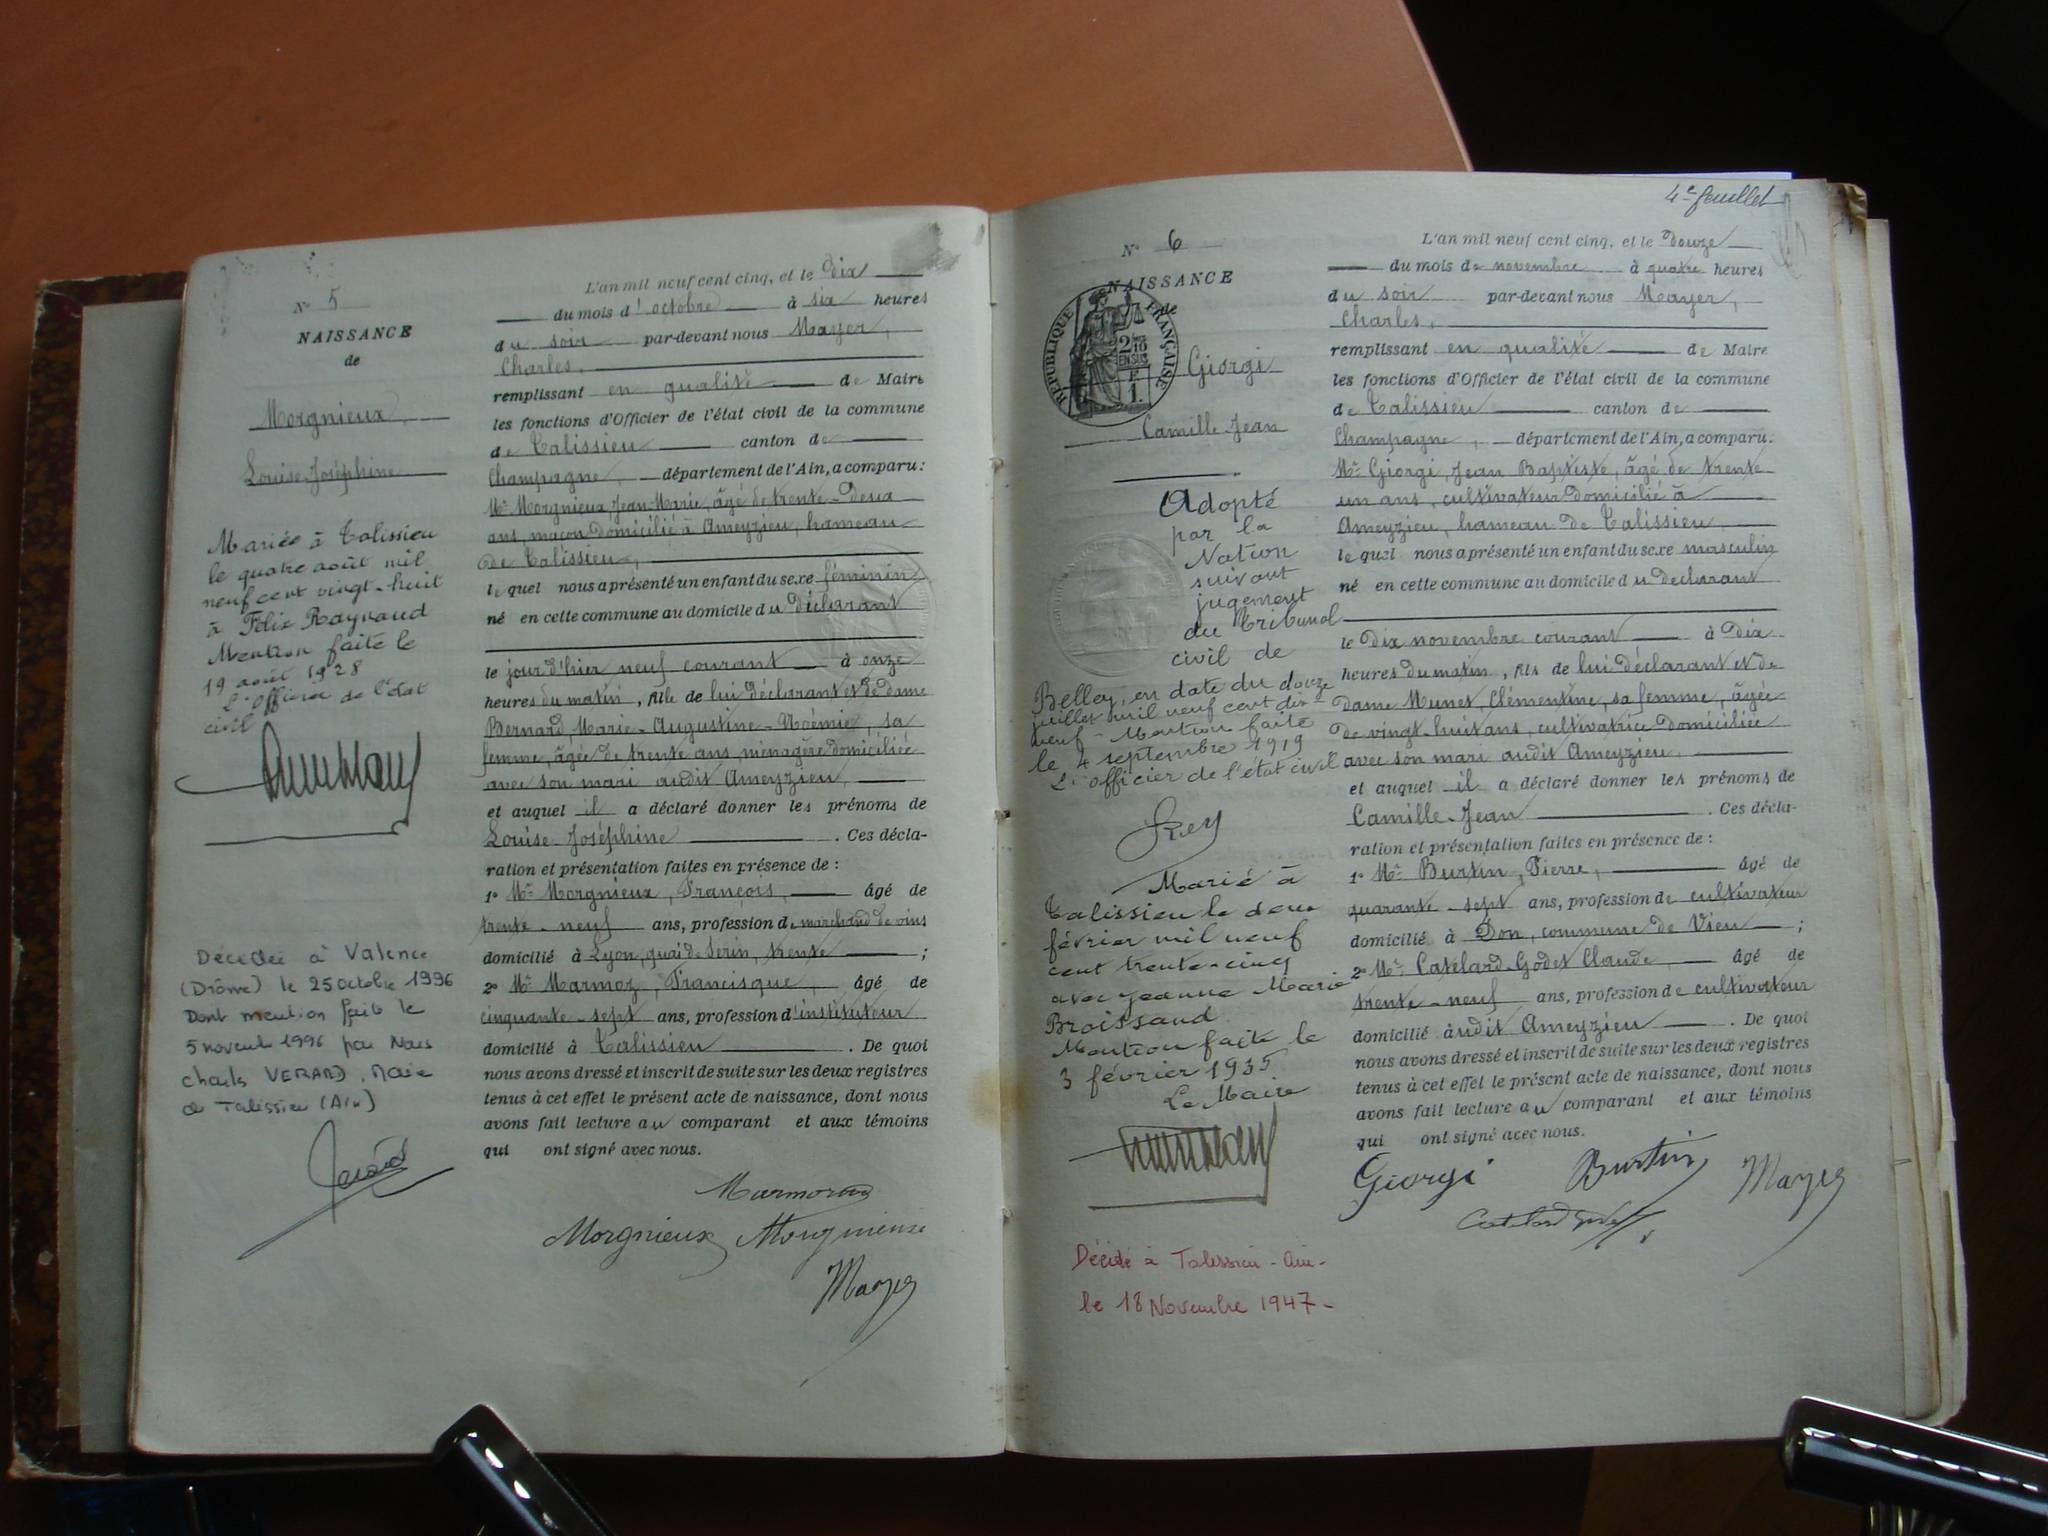 N° 5
NAISSANCE
de
Morgnieux
Louise-Joséphine
Mariée à Talissieu
le quatre août mil
neuf cent vingt-huit
à Félix Raynaud
Mention faite le
19 août 1928
L'officier de l'état
civil
Décédée à Valence
(Drôme) le 25 octobre 1996
Dont mention faite le
5 novemb 1996 par Nous
Charles VERARD, Maire
de Talissieu (Ain)
L'an mil neuf cent cinq, et le dix
du mois d'octobre à six heures
du soir par-devant nous Mayer,
Charles,
remplissant en qualité de Maire
les fonctions d'Officier de l'état civil de la commune
de Talissieu canton de
Champagne, département de l'Ain, a comparu:
Mr Morgnieux, Jean-Marie, âgé de trente-deux
ans, maçon domicilié à Ameyzieu, hameau
de Talissieu,
le quel nous a présenté un enfant du sexe féminin
né en cette commune au domicile du déclarant
le jour d'hier neuf courant à onze
heures du matin, fille de lui déclarant et de dame
Bernard, Marie-Augustine-Noémie, sa
femme, âgée de trente ans, ménagère domiciliée
avec son mari audit Ameyzieu,
et auquel il a déclaré donner les prénoms de
Louise-Joséphine . Ces décla-
ration et présentation faites en présence de :
1° Mr Morgnieux, François, âgé de
trente-neuf ans, profession de marchand de vins
domicilié à Lyon, quai de Serin, trente ;
2° Mr Marmoz, Francisque, âgé de
cinquante-sept ans, profession d'instituteur
domicilié à Talissieu . De quoi
nous avons dressé et inscrit de suite sur les deux registres
tenus à cet effet le présent acte de naissance, dont nous
avons fait lecture au comparant et aux témoins
qui ont signé avec nous.
Morgnieux
Mayer
4e feuillet
N° 6
NAISSANCE
de
RÉPUBLIQUE FRANÇAISE
2/10
EN SUS
1.
Giorgi
Camille-Jean
Adopté
par la
Nation
suivant
jugement
du Tribunal
civil de
Belley, en date du douze
juillet mil neuf cent dix-
neuf - Mention faite
le 4 septembre 1919
L'officier de l'état civil
Rey
Marié à
Talissieu le deux
février mil neuf
cent trente-cinq
avec Jeanne Marie
Broissand
Mention faite le
3 février 1935
Le Maire
Décédé à Talissieu - Ain -
le 18 Novembre 1947 -
L'an mil neuf cent cinq, et le douze
du mois de novembre à quatre heures
du soir par-devant nous Mayer,
Charles,
remplissant en qualité de Maire
les fonctions d'Officier de l'état civil de la commune
de Talissieu canton de
Champagne, département de l'Ain, a comparu:
Mr Giorgi, Jean Baptiste, âgé de trente
un ans, cultivateur domicilié à
Ameyzieu, hameau de Talissieu,
le quel nous a présenté un enfant du sexe masculin
né en cette commune au domicile du déclarant
le dix novembre courant à dix
heures du matin, fils de lui déclarant et de
dame Munet, Clémentine, sa femme, âgée
de vingt-huit ans, cultivatrice domiciliée
avec son mari audit Ameyzieu,
et auquel il a déclaré donner les prénoms de
Camille-Jean . Ces décla-
ration et présentation faites en présence de :
1° Mr Burtin, Pierre, âgé de
quarante-sept ans, profession de cultivateur
domicilié à Don, commune de Vieu ;
2° Mr Catelard-Godet Claude, âgé de
trente-neuf ans, profession de cultivateur
domicilié audit Ameyzieu . De quoi
nous avons dressé et inscrit de suite sur les deux registres
tenus à cet effet le présent acte de naissance, dont nous
avons fait lecture au comparant et aux témoins
qui ont signé avec nous.
Giorgi Burtin Mayer